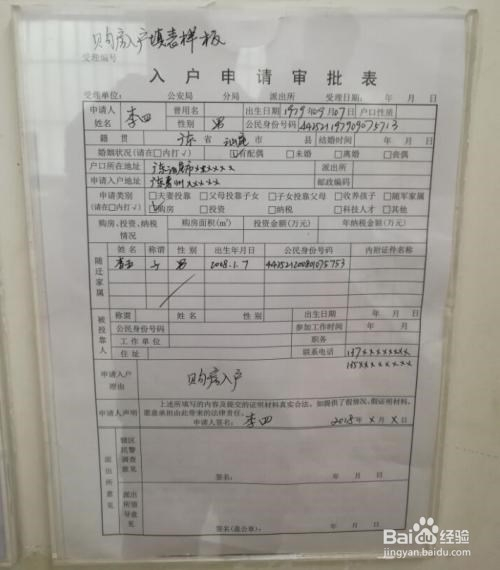 购房入户填表样板
受理编号
入户申请审批表
受理单位： 公安局 分局 派出所 受理日期： 年 月 日
申请人姓名 李四 曾用名 出生日期 1979年09月07日 户口性质
性别 男 公民身份号码 441521197909075713
籍贯 广东 省 汕尾 市 县 结婚时间 年 月 日
婚姻状况（请在□内打√） ☑有配偶 □未婚 □离婚 □丧偶
户口所在地址 广东汕尾市××××× 派出所
申请入户地址 广东惠州×××× 邮政编码
申请类别（请在□内打√） □夫妻投靠 □父母投靠子女 □子女投靠父母 □收养孩子 □随军家属
☑购房 □投资 □纳税 □科技人才 □其他
购房、投资、纳税情况 购房面积（m²） 投资金额（万元） 年纳税金额（万元）
随迁家属 姓名 称谓 性别 出生年月日 公民身份号码 内附证件名称
子 男 2008.1.7 441521200801075753
被投靠人 称谓 姓名 性别 出生日期 年 月 日
公民身份号码 参加工作时间 年 月 日
工作单位 职务
住址 联系电话 137××××××××
135××××××××
申请入户理由 购房入户
申请人声明 上述所填写的内容及提交的证明材料真实合法，如提供了假情况、假证明材料，愿意承担由此带来的法律责任。
申请人签名： 李四 2018年×月×日
派出所意见 辖区民警调查意见 签名： 年 月 日
派出所领导意见 签名（盖公章）： 年 月 日
Baidu经验
jingyan.baidu.com